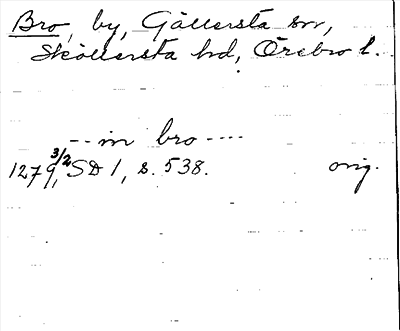 Bro, by, Gällersta sn,
Sköllersta hd, Örebro l.
-- in bro ----
1279 3/2, SD 1, s. 538. orig.